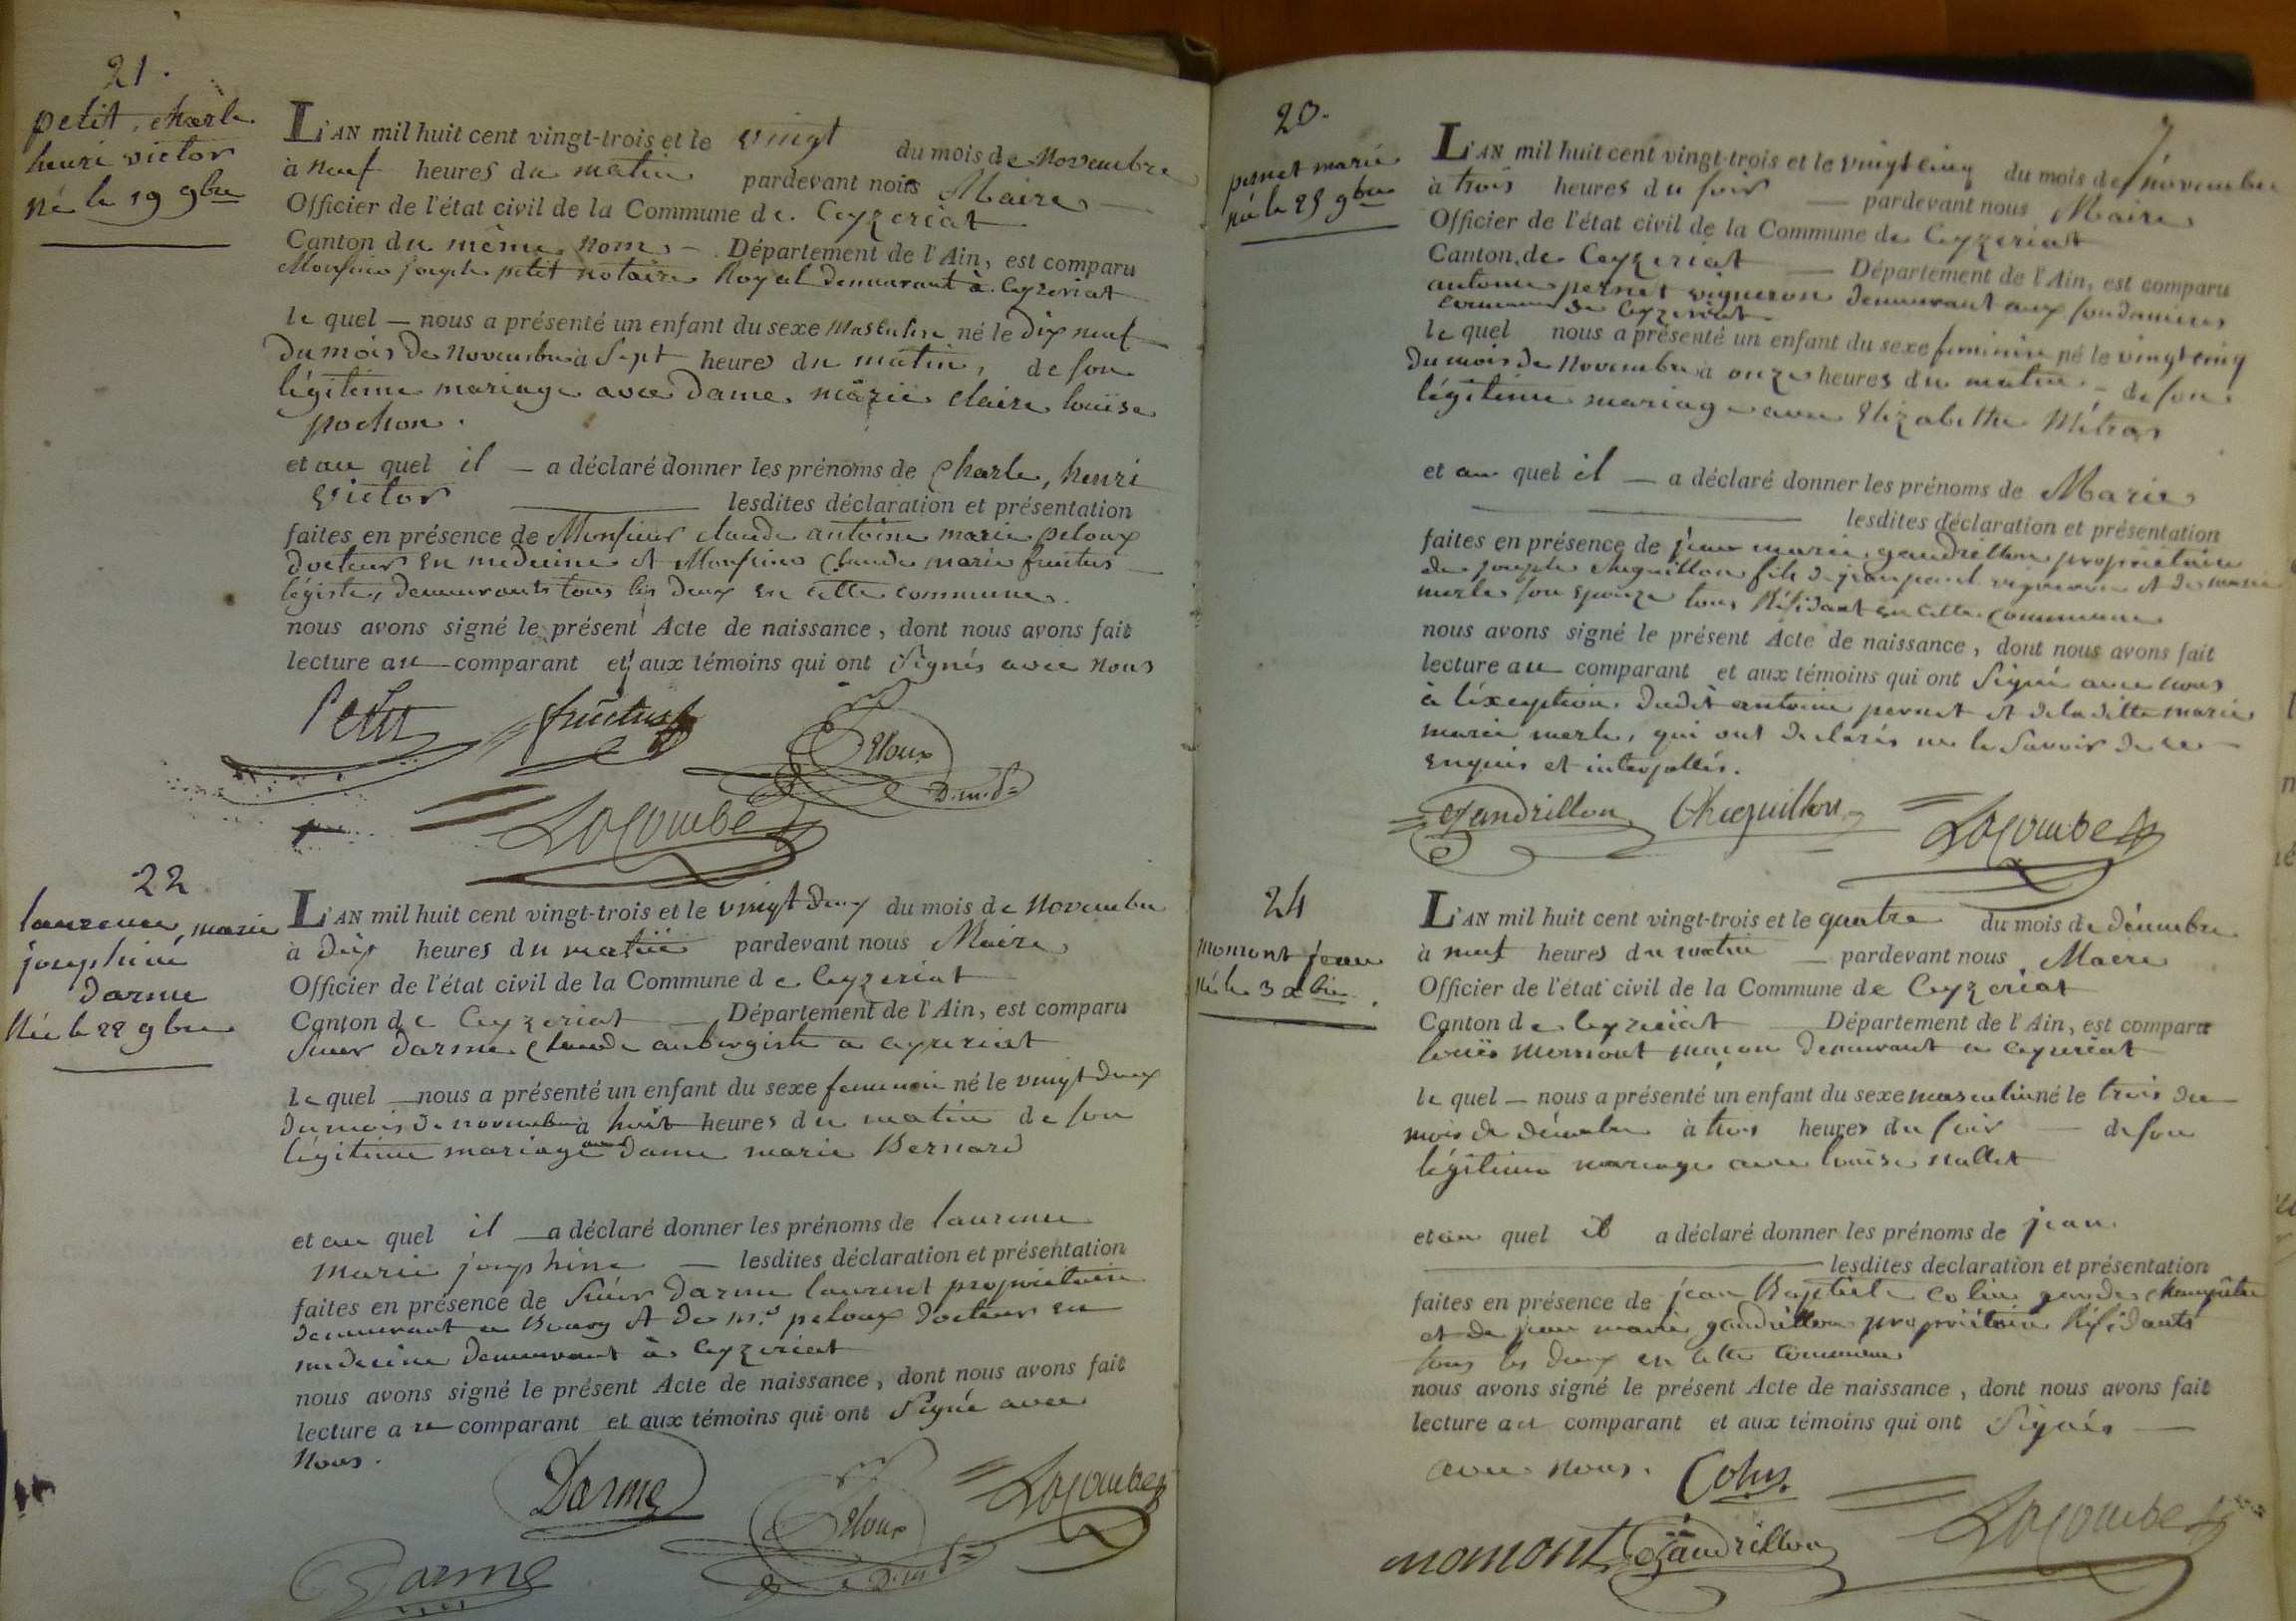 21.
petit, charle
henri victor
né le 19 9bre
L'AN mil huit cent vingt-trois et le vingt du mois de Novembre
à neuf heures du matin pardevant nous Maire
Officier de l'état civil de la Commune de Ceyzeriat
Canton du même nom — Département de l'Ain, est comparu
Monsieur joseph petit notaire Royal demeurant à Ceyzeriat
le quel — nous a présenté un enfant du sexe masculin né le dix neuf
du mois de Novembre à sept heures du matin, de son
légitime mariage avec dame marie claire louise
pochon.
et au quel il — a déclaré donner les prénoms de Charle, henri
victor lesdites déclaration et présentation
faites en présence de Monsieur claude antoine marie peloux
docteur en medecine et Monsieur Claude marie fructus
légiste, demeurants tous les deux en cette commune.
nous avons signé le présent Acte de naissance, dont nous avons fait
lecture au comparant et aux témoins qui ont signés avec nous
Petit fructus Peloux
D.m.
Lacombe
22
laurence, marie
josephine
darme
née le 22 9bre
L'AN mil huit cent vingt-trois et le vingt deux du mois de Novembre
à dix heures du matin pardevant nous Maire
Officier de l'état civil de la Commune de Ceyzeriat
Canton de Ceyzeriat — Département de l'Ain, est comparu
sieur darme Claude aubergiste a ceyzeriat
le quel — nous a présenté un enfant du sexe feminin né le vingt deux
du mois de novembre à huit heures du matin de son
légitime mariage avec dame marie Bernard
et au quel il — a déclaré donner les prénoms de laurence
marie josephine — lesdites déclaration et présentation
faites en présence de sieur darme laurent propriétaire
demeurant a Bourg et de mr. peloux docteur en
medecine demeurant à Ceyzeriat
nous avons signé le présent Acte de naissance, dont nous avons fait
lecture au comparant et aux témoins qui ont signé avec
nous.
Darme Peloux Lacombe
D.m.
Darme
7
20.
pernet marie
née le 25 9bre
L'AN mil huit cent vingt-trois et le vingt cinq du mois de novembre
à trois heures du soir — pardevant nous Maire
Officier de l'état civil de la Commune de Ceyzeriat
Canton de Ceyzeriat — Département de l'Ain, est comparu
antoine pernet vigneron demeurant aux
commune de Ceyzeriat
le quel nous a présenté un enfant du sexe feminin né le vingt cinq
du mois de Novembre à onze heures du matin — de son
légitime mariage avec Elizabethe Métras
et au quel il — a déclaré donner les prénoms de Marie
lesdites déclaration et présentation
faites en présence de jean marie gandrillon propriétaire
de joseph chaquillon fils de jean paul vigneron et de marie
merle son epouze tous Résidant en cette commune
nous avons signé le présent Acte de naissance, dont nous avons fait
lecture au comparant et aux témoins qui ont signé avec nous
à l'exception dudit antoine pernet et de la ditte marie
marie merle, qui ont declarés ne le savoir de ce
enquis et interpellés.
Gandrillon Chaquillon Lacombe
24
momont jean
né le 3 xbre
L'AN mil huit cent vingt-trois et le quatre du mois de décembre
à neuf heures du matin — pardevant nous Maire
Officier de l'état civil de la Commune de Ceyzeriat
Canton de Ceyzeriat — Département de l'Ain, est comparu
louis momont maçon demeurant a ceyzeriat
le quel — nous a présenté un enfant du sexe masculin né le trois du
mois de décembre à trois heures du soir — de son
légitime mariage avec louise nallet
et au quel il a déclaré donner les prénoms de jean
lesdites declaration et présentation
faites en présence de jean Baptiste Colin garde champêtre
et de jean marie gandrillon propriétaire Résidants
tous les deux en cette commune
nous avons signé le présent Acte de naissance, dont nous avons fait
lecture au comparant et aux témoins qui ont signés —
avec nous. Colin
momont Gandrillon Lacombe